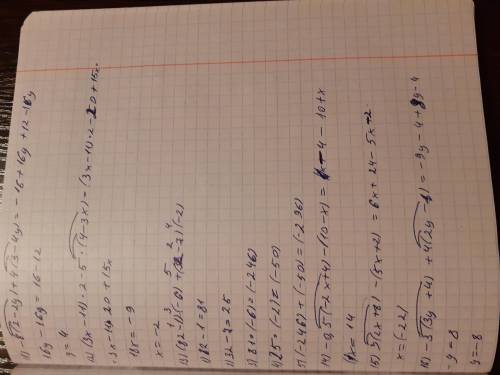 11) -8(2-2y)+4(3-4y)=-16+16y+12-16y
16y-16y=16-12
y=4
12) (3x-11)·2-5·(4-3x)=(3x-11)·2-20+15x.
·3x-11·20+15x
18x=-9
x=-2
1 3 5 2 4
13)(82-1)(-6)+(32-7)(-2)
1) 82-1=81
2) 32-7=25
3) 81·(-6)=(-246)
4) 25·(-2)=(-50)
5) (-246)+(-50)=(-296)
14) -0,5(-2x+4)-(10-x)= -4-10+x
x=14
15) 3(2x+8)-(5x+2)=6x+24-5x-2
x=(-22)
16) -3(3y+4)+4(2y-1)=-9y-4+8y-4
-y=8
y=-8